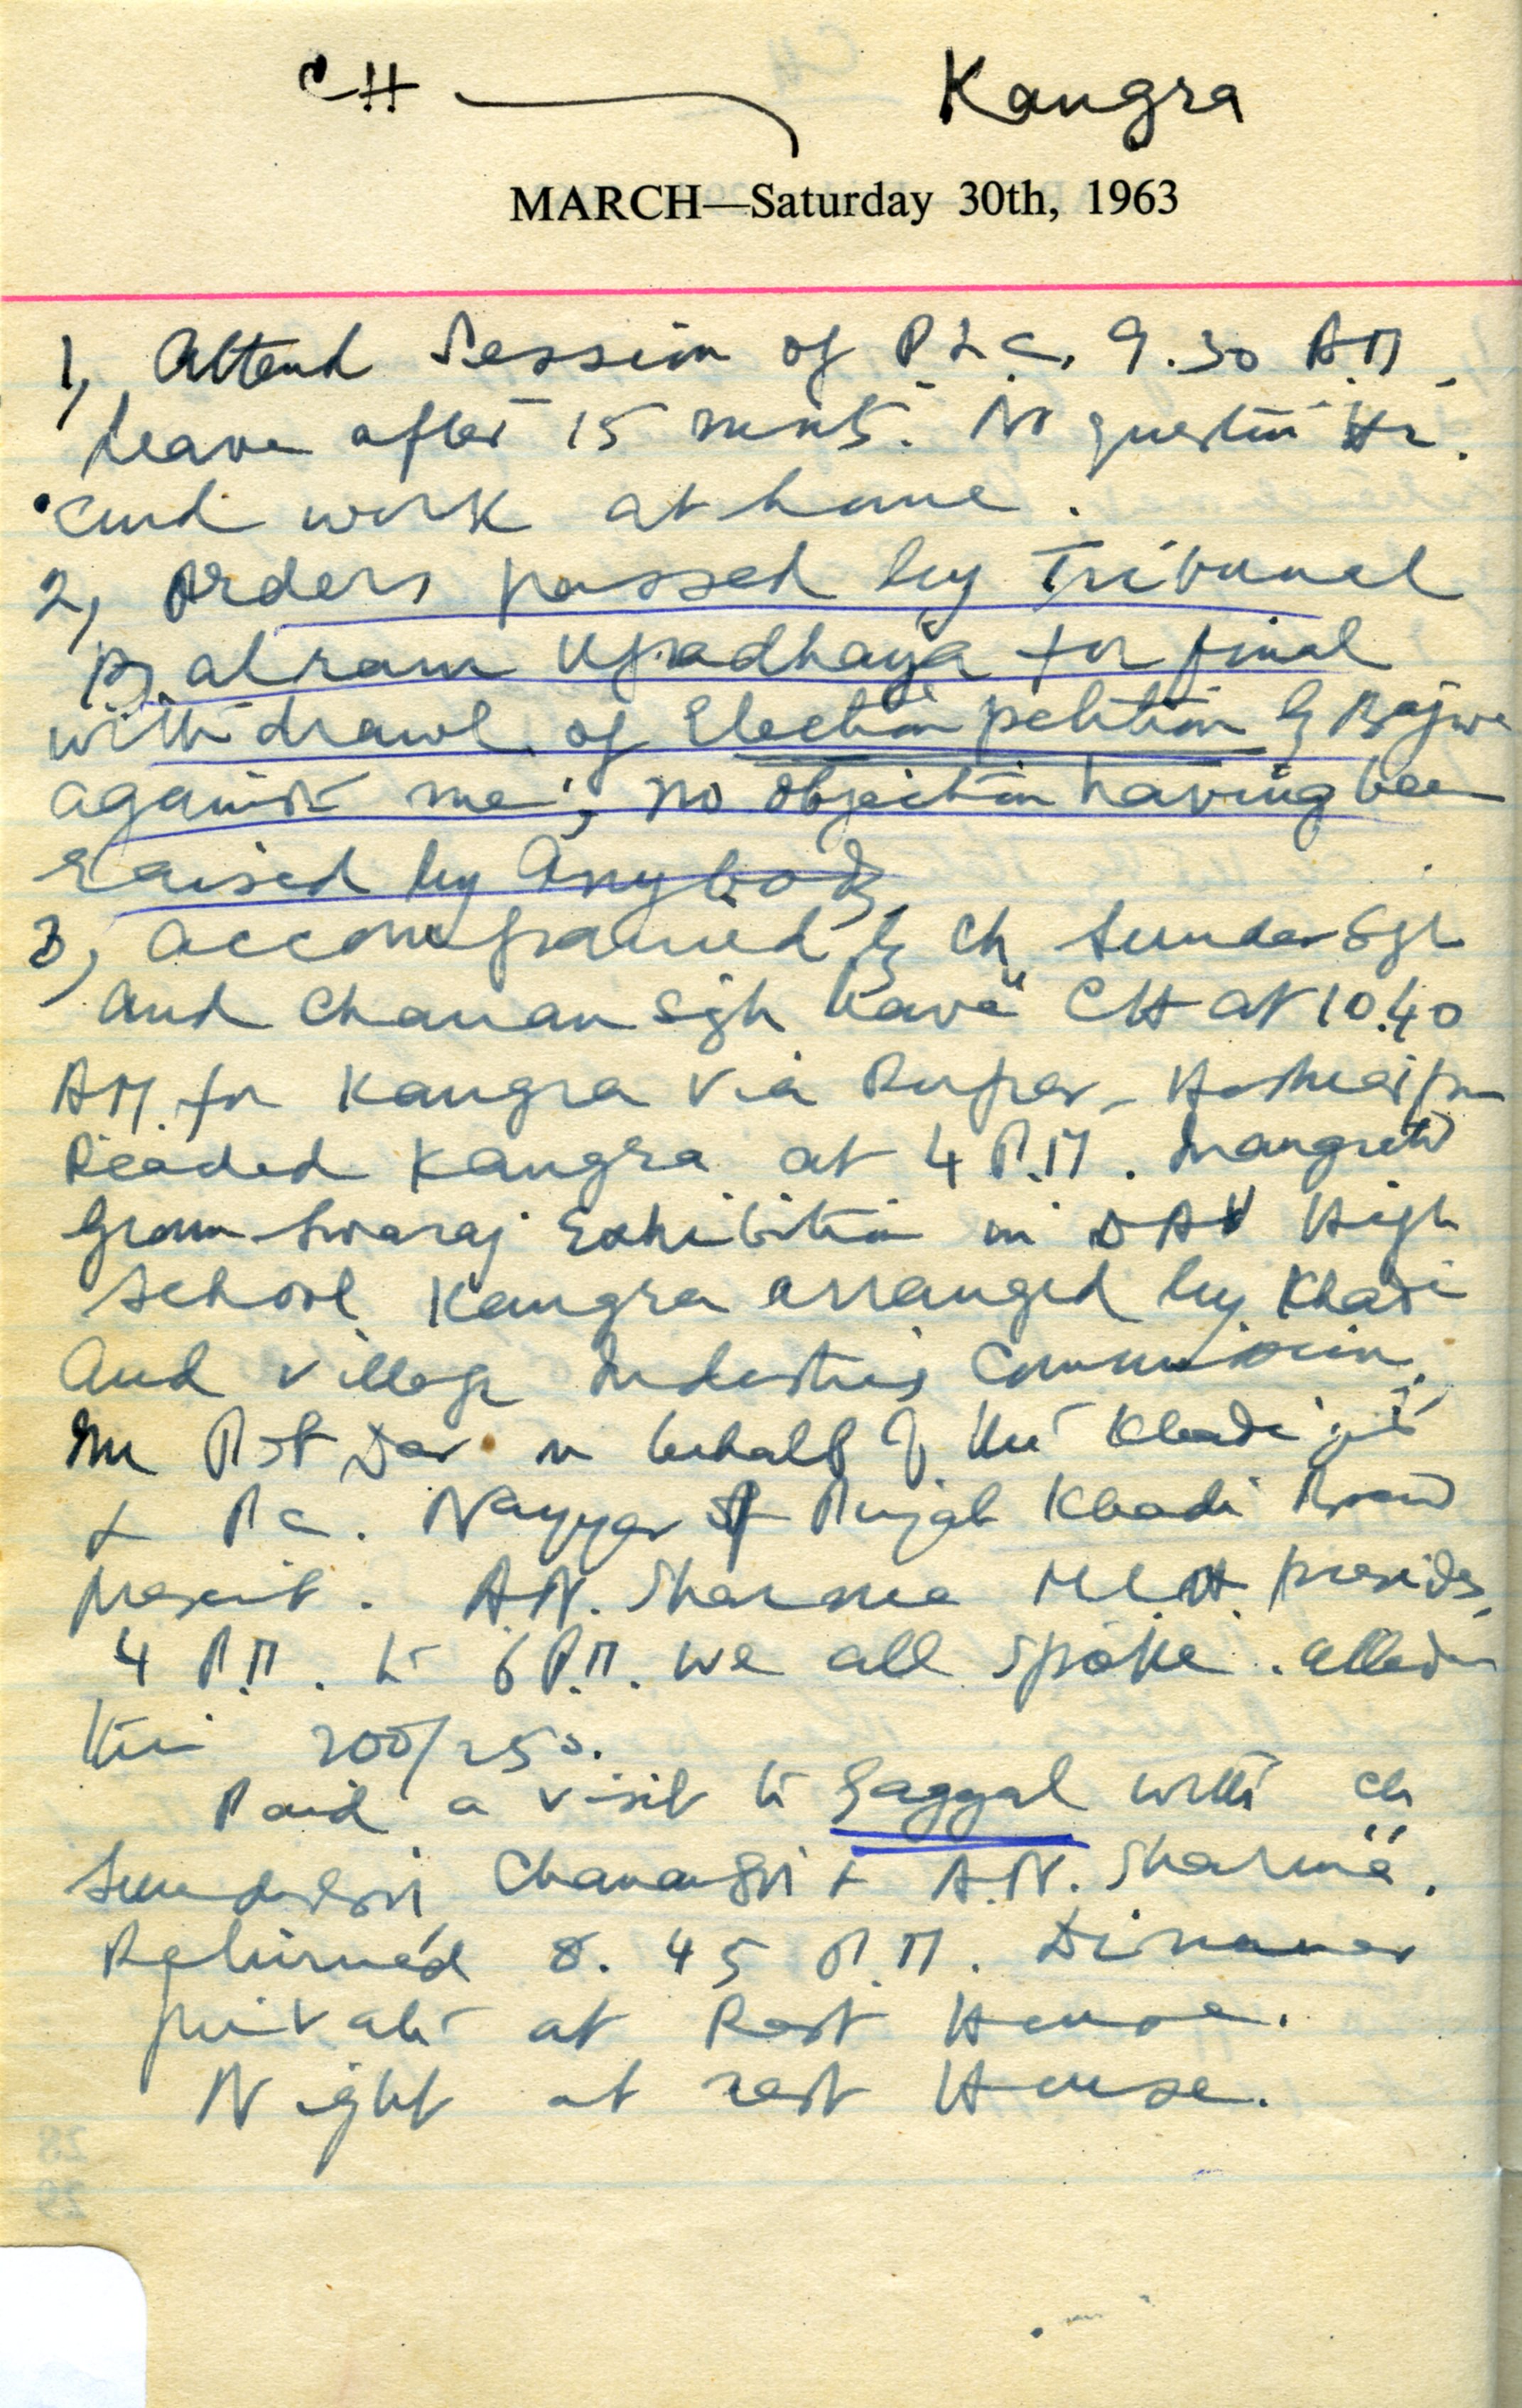 CH Kangra
MARCH—Saturday 30th, 1963
1, Attend Session of P.L.C. 9.30 A.M.
leave after 15 minits. No question Hr.
and work at home.
2, Orders passed by Tribunal
Balram Upadhaya for final
withdrawl of Election petition by Bajwa
against me; no objection having been
raised by Anybody
3, accompanied by Ch Sunder Sgh
and Chanan Sgh leave CH at 10.40
AM for Kangra via Rupar - Hoshiarpur
Reached Kangra at 4 P.M.
Gram Swaraj Exhibition in DAV High
School Kangra arranged by Khadi
and Village Industries Commission.
on behalf of the Khadi
& P.C. Nayyar of Punjab Khadi Board
present. A.N. Sharma M.L.A. presides.
4 P.M. to 6 P.M. we all spoke.
200/250.
Paid a visit to Gaggal with Ch
Sunder Chanan & A.N. Sharma.
Returned 8.45 P.M. Dinner
private at Rest House.
Night at rest House.